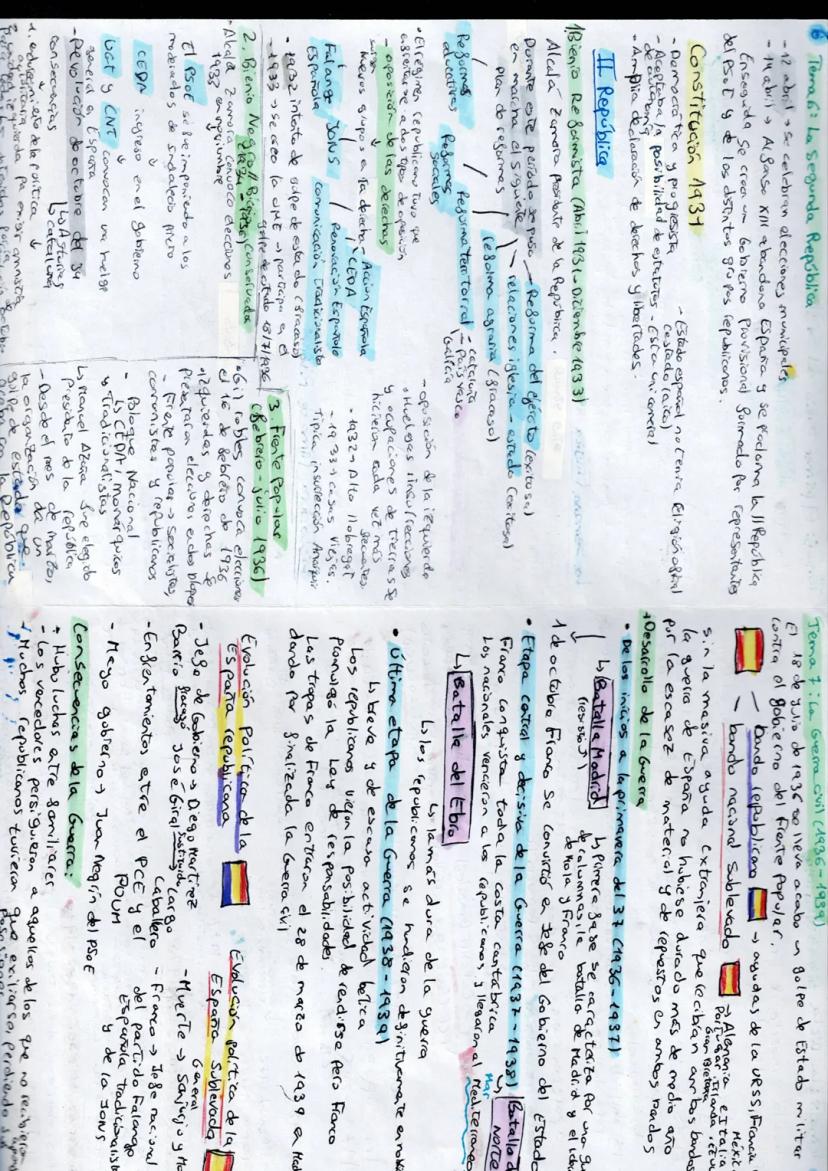 Tema 6: La segunda República
- 12 abril → se celebran elecciones municipales
- 14 abril → Alfonso XIII abandona España y se proclama la II República
Enseguida se crea un Gobierno Provisional formado por representantes
del PSOE y de los distintos grupos republicanos.
Constitución 1931
- Democrática y progresista
- Aceptaba la posibilidad de estatutos
de autonomía
- Amplia declaración de derechos y libertades.
- Estado español no tenía religión oficial
(estado laico)
II República
1 Bienio Reformista (Abril 1931 - Diciembre 1933)
Alcalá Zamora presidente de la República.
Durante este período se puso
en marcha el siguiente
plan de reformas
Reforma del ejército (exitosa)
relaciones iglesia - estado (exitosa)
reforma agraria (fracaso)
Reforma territorial
- cataluña
- País Vasco
Galicia
Reformas
sociales
Reformas
educativas
• El régimen republicano tuvo que
a dos tipos de oposición
- oposición de las derechas
nuevos grupos a la derecha
Acción Española
CEDA
Renovación Española
comunicación Tradicionalista
Falange JONS
Española
- 1932 intento de golpe de estado (fracaso)
- 1933 → se creó la UME → participa en el
golpe de estado 18/7/1936
- oposición de la izquierda
• Huelgas, insurrecciones
y ocupaciones de tierras se
hicieron cada vez más
frecuentes
- 1932 → Alto Llobregat
- 1933 → casas Viejas.
Típica insurrección
2. Bienio Negro / Bienio conservador
• Alcalá Zamora convoco elecciones
1933 en noviembre
El PSOE se fue imponiendo a los
moderados de indalecio prieto
CEDA ingreso en el gobierno
UGT y CNT convocan una huelga
general en España
- Revolución de octubre del 34
↳ Asturias
↳ cataluña
consecuencias
1. endurecimiento de la política
3. Frente Popular
(Febrero - Julio 1936)
• Gil robles convoca elecciones
el 16 de febrero de 1936
• izquierdas y derechas se
presentaron elecciones en dos bloques
- Frente popular → socialistas,
comunistas y republicanos
- Bloque Nacional
↳ CEDA, monárquicos
y Tradicionalistas
↳ Manuel Azaña fue elegido
presidente de la república
- Desde el mes de marzo,
la organización de un
golpe de estado que
Tema 7: La Guerra civil (1936 - 1939)
El 18 de julio de 1936 se lleva acabo un golpe de Estado militar
contra el gobierno del Frente Popular.
bando republicano → ayudas de la URSS, Francia
México
bando nacional sublevado → Alemania e Italia
Portugal, Irlanda
Gran Bretaña
sin la masiva ayuda extranjera que recibían ambos bandos
la guerra de España no hubiese durado más de medio año
por la escasez de material y de repuestos en ambos bandos
• Desarrollo de la Guerra
• De los inicios a la primavera del 37 (1936 - 1937)
↳ Batalla Madrid
↳ primera fase se caracteriza por una
de columnas, la batalla de Madrid y el
de Mola y Franco
1 de octubre Franco se convirtió en Jefe del Gobierno del Estado
• Etapa central y decisiva de la Guerra (1937 - 1938)
Franco conquista toda la costa cantábrica
↳ Batalla
norte
Los nacionales vencieron a los republicanos y llegaron al Mar
Mediterráneo
↳ Batalla del Ebro
↳ la más dura de la guerra
↳ los republicanos se hundieron definitivamente
• Última etapa de la Guerra (1938 - 1939)
↳ breve y de escasa actividad bélica
Los republicanos vieron la posibilidad de rendirse pero Franco
promulgó la Ley de responsabilidades.
Las tropas de Franco entraron el 28 de marzo de 1939 en
dando por finalizada la Guerra civil
Evolución política de la
España republicana
- Jefe de Gobierno → Diego Martínez
Barrio fracasó José Giral
sustituido
Largo
Caballero
- Enfrentamientos entre el PCE y el
POUM
- Nuevo gobierno → Juan Negrín del PSOE
Evolución política de la
España Sublevada
- Muerte → Sanjurjo y
General
- Franco → Jefe nacional
del partido Falange
Española Tradicionalista
y de la JONS
Consecuencias de la Guerra:
• Hubo luchas entre familiares
- Los vencedores persiguieron a aquellos de los que no recibieron
• Muchos republicanos tuvieron que exiliarse, perdiendo